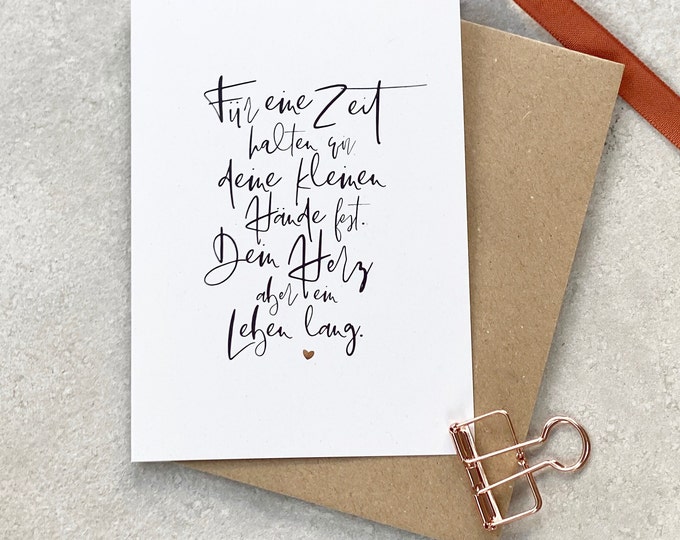 Für eine Zeit
halten wir
deine kleinen
Hände fest.
Dein Herz
aber ein
Leben lang.